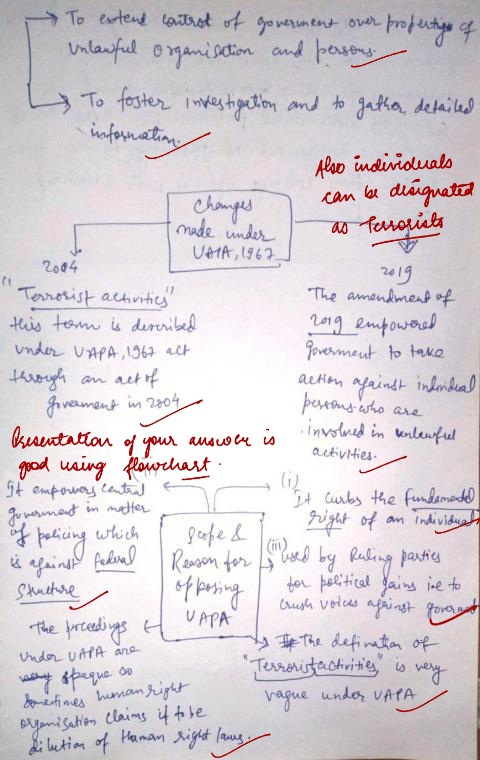 → To extend control of goverment over properties of
unlawful organisation and persons.
→ To foster investigation and to gather detailed
information.
Also individuals
can be designated
as Terrorists
Changes
made under
UAPA, 1967
2004
"Terrorist activities"
this term is described
under UAPA, 1967 act
through an act of
goverment in 2004
2019
The amendment of
2019 empowered
goverment to take
action against individual
persons who are
involved in unlawful
activities.
Presentation of your answer is
good using flowchart.
Scope &
Reason for
opposing
UAPA
(i)
It curbs the fundamental
right of an individual
(iii) Used by Ruling parties
for political gains i.e to
crush voices against goverment
The defination of
"Terrorist activities" is very
vague under UAPA
It empowers central
goverment in matter
of policing which
is against federal
structure
The proceedings
under UAPA are
opaque so
sometimes human right
organisation claims it to be
dilution of Human right laws.